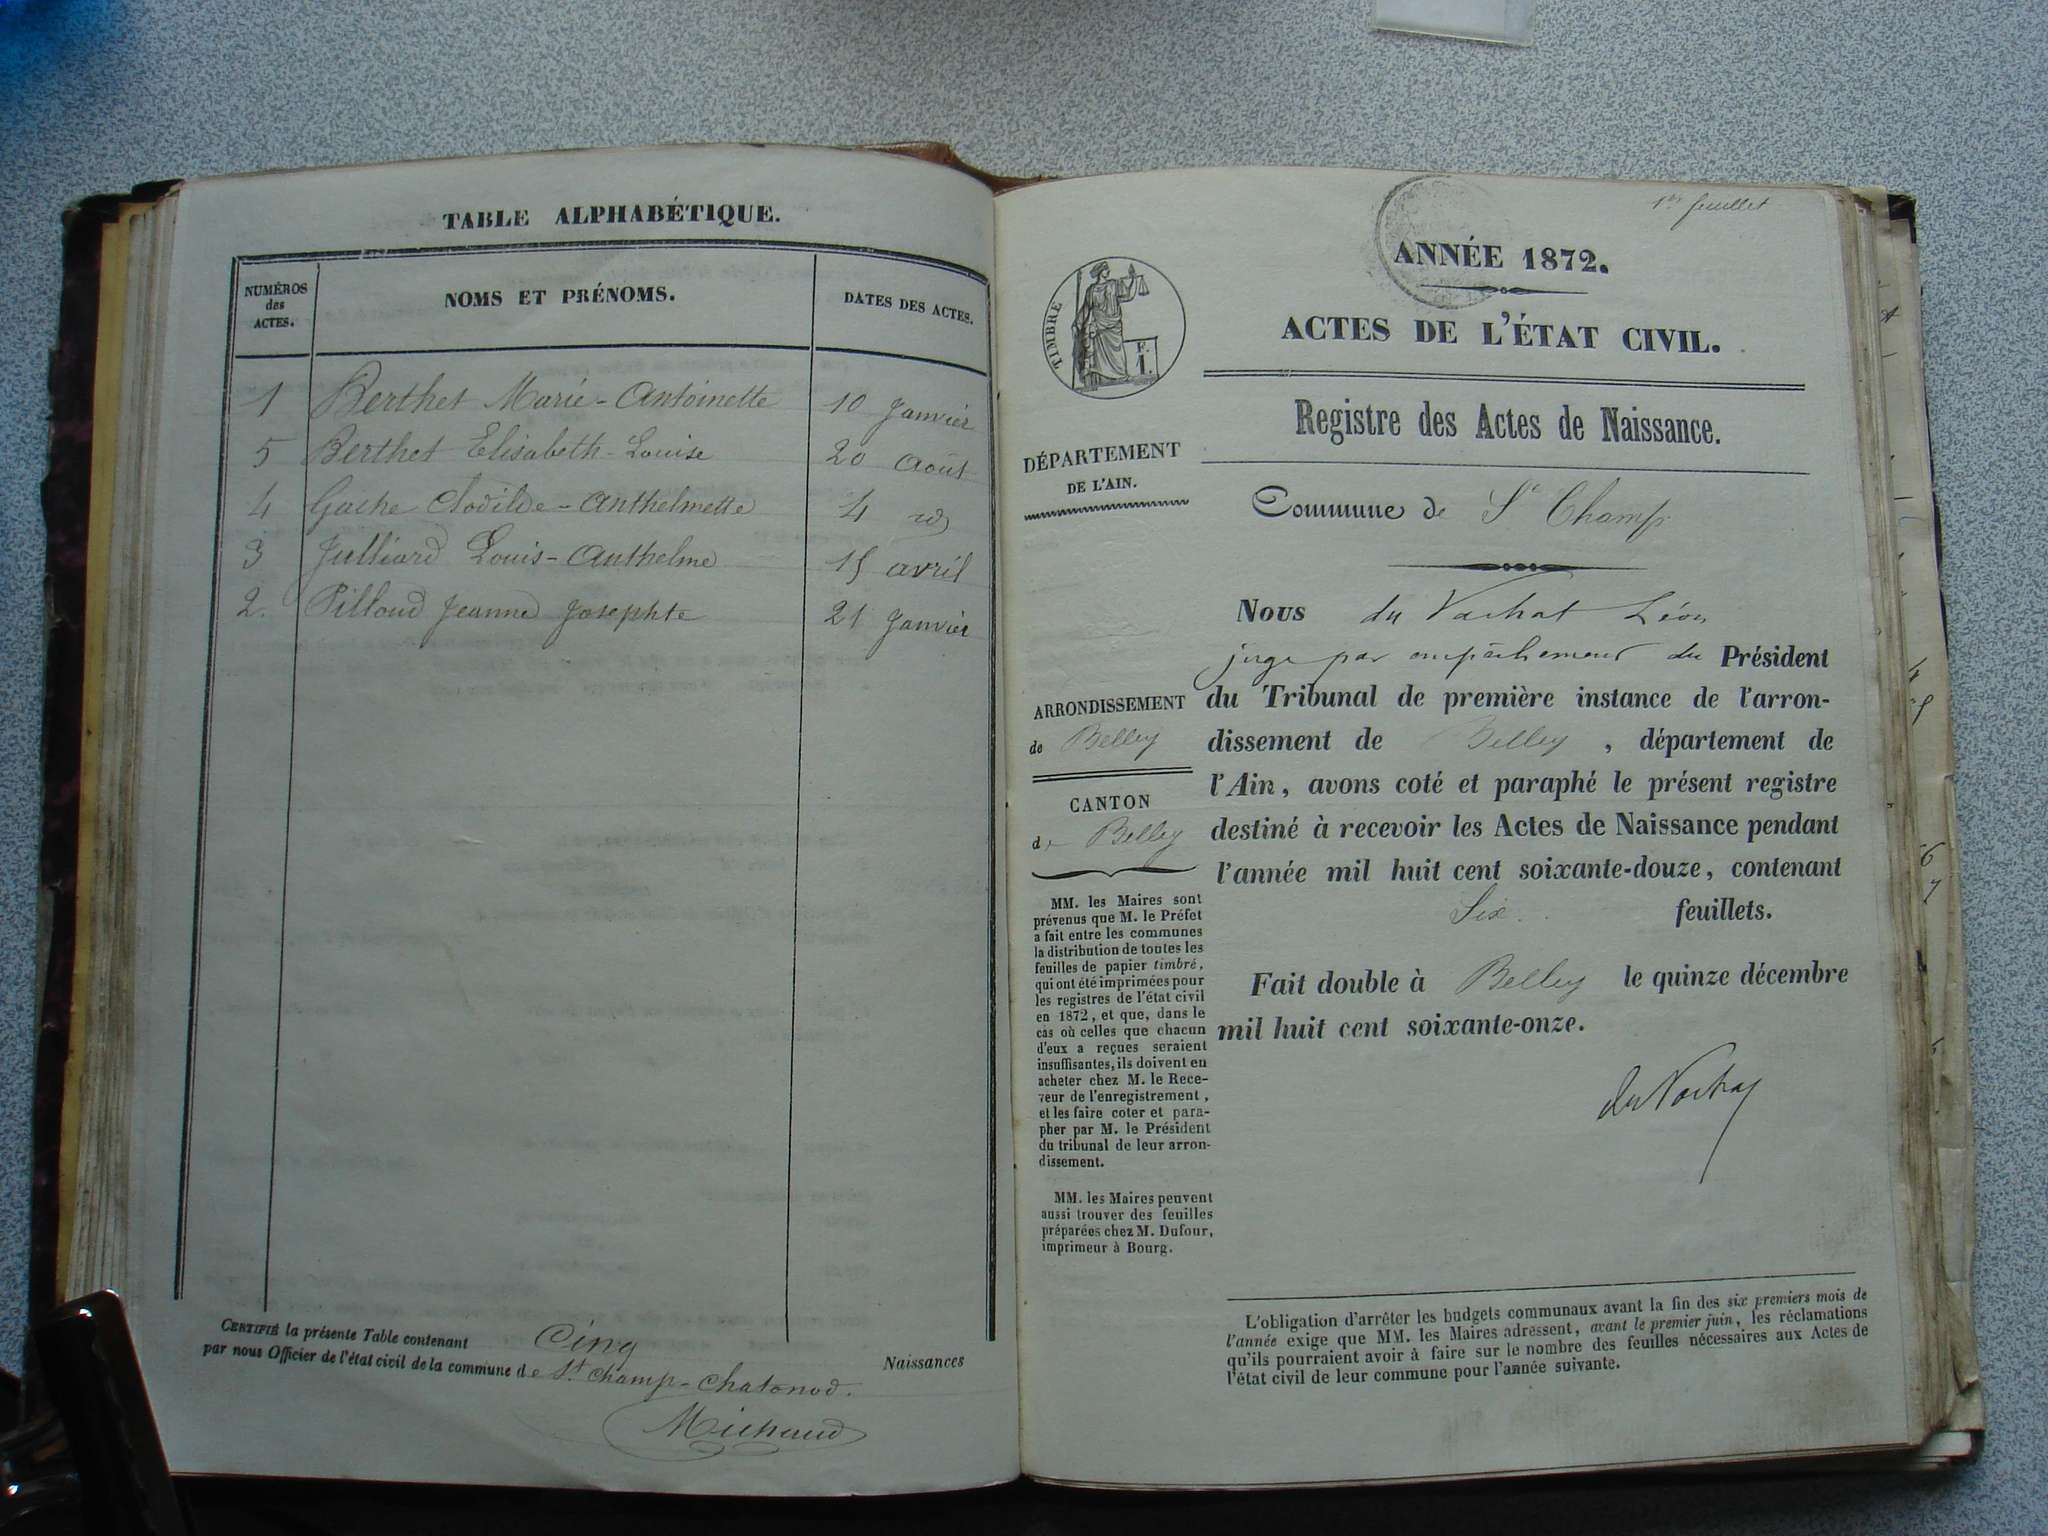 TABLE ALPHABÉTIQUE.
NUMÉROS
des
ACTES.
NOMS ET PRÉNOMS.
DATES DES ACTES.
1 Berthet Marie-Antoinette 10 Janvier
5 Berthet Elisabeth-Louise 20 Août
4 Gache Clodilde-Anthelmette 4 id
3 Julliard Louis-Anthelme 15 avril
2. Pilloud Jeanne Josephte 21 Janvier
CERTIFIÉ la présente Table contenant Cinq Naissances
par nous Officier de l'état civil de la commune de St Champ-Chatonod.
Michaud
1er feuillet
ANNÉE 1872.
ACTES DE L'ÉTAT CIVIL.
Registre des Actes de Naissance.
TIMBRE
F.
1.
DÉPARTEMENT
DE L'AIN.
ARRONDISSEMENT
de Belley
CANTON
de Belley
MM. les Maires sont
prévenus que M. le Préfet
a fait entre les communes
la distribution de toutes les
feuilles de papier timbré,
qui ont été imprimées pour
les registres de l'état civil
en 1872, et que, dans le
cas où celles que chacun
d'eux a reçues seraient
insuffisantes, ils doivent en
acheter chez M. le Rece-
veur de l'enregistrement,
et les faire coter et para-
pher par M. le Président
du tribunal de leur arron-
dissement.
MM. les Maires peuvent
aussi trouver des feuilles
préparées chez M. Dufour,
imprimeur à Bourg.
Commune de St Champ
Nous du Vachat Léon
juge par empêchement du Président
du Tribunal de première instance de l'arron-
dissement de Belley, département de
l'Ain, avons coté et paraphé le présent registre
destiné à recevoir les Actes de Naissance pendant
l'année mil huit cent soixante-douze, contenant
Six feuillets.
Fait double à Belley le quinze décembre
mil huit cent soixante-onze.
du Vachat
L'obligation d'arrêter les budgets communaux avant la fin des six premiers mois de
l'année exige que MM. les Maires adressent, avant le premier juin, les réclamations
qu'ils pourraient avoir à faire sur le nombre des feuilles nécessaires aux Actes de
l'état civil de leur commune pour l'année suivante.